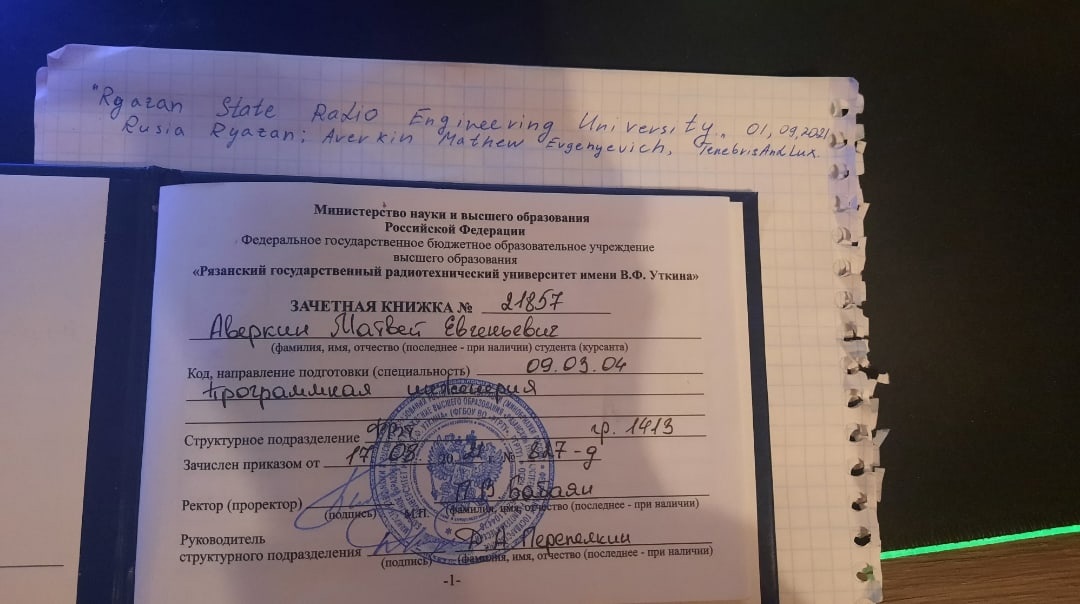 "Rgazan State Radio Engineering University„ 01,09,2021
Rusia Ryazan; Averkin Mathew Evgenyevich, TenebrisAndLux.
Министерство науки и высшего образования
Российской Федерации
Федеральное государственное бюджетное образовательное учреждение
высшего образования
«Рязанский государственный радиотехнический университет имени В.Ф. Уткина»
ЗАЧЕТНАЯ КНИЖКА № 21857
Аверкин Матвей Евгеньевич
(фамилия, имя, отчество (последнее - при наличии) студента (курсанта)
Код, направление подготовки (специальность) 09.03.04
Программная инженерия
Структурное подразделение ФВТ гр. 1413
Зачислен приказом от 17.08. 2021 г. № 827-д
А.В. Бабаян
Ректор (проректор)
(подпись) М.П. (фамилия, имя, отчество (последнее - при наличии)
Руководитель
структурного подразделения Д.А. Перепелкин
(подпись) (фамилия, имя, отчество (последнее - при наличии)
-1-